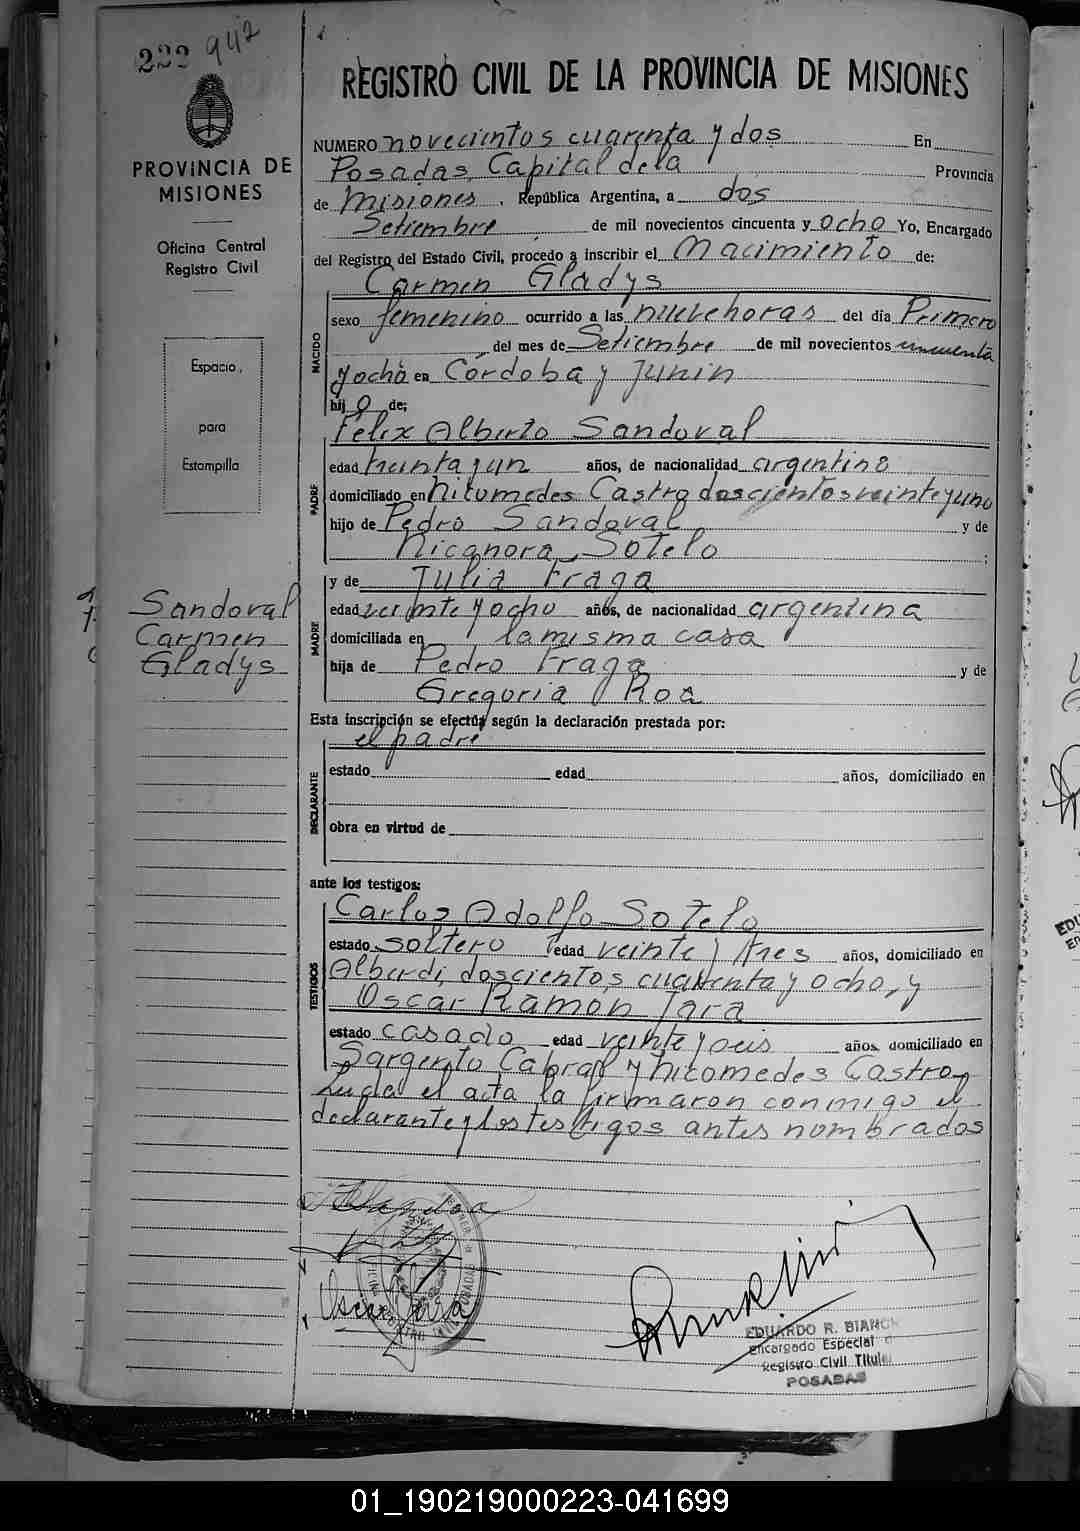 222 942
REGISTRO CIVIL DE LA PROVINCIA DE MISIONES
PROVINCIA DE
MISIONES
Oficina Central
Registro Civil
Espacio,
para
Estampilla
Sandoval
Carmen
Gladys
NUMERO novecientos cuarenta y dos En
Posadas, Capital de la Provincia
de Misiones, República Argentina, a dos
Setiembre de mil novecientos cincuenta y ocho Yo, Encargado
del Registro del Estado Civil, procedo a inscribir el Nacimiento de:
Carmen Gladys
NACIDO
sexo femenino ocurrido a las nueve horas del día Primero
del mes de Setiembre de mil novecientos cincuenta
y ocho en Córdoba y Junin
hij a de:
Félix Alberto Sandoval
PADRE
edad treinta y un años, de nacionalidad argentina
domiciliado en Nicomedes Castro doscientos veinte y uno
hijo de Pedro Sandoval y de
Nicanora Sotelo ;
y de Julia Fraga
MADRE
edad veinte y ocho años, de nacionalidad argentina
domiciliada en la misma casa
hija de Pedro Fraga y de
Gregoria Roa
Esta inscripción se efectúa según la declaración prestada por:
el padre
DECLARANTE
estado edad años, domiciliado en
obra en virtud de
ante los testigos:
Carlos Adolfo Sotelo
TESTIGOS
estado soltero edad veinte y tres años, domiciliado en
Alberdi, doscientos cuarenta y ocho, y
Oscar Ramon Jara
estado casado edad veinte y seis años, domiciliado en
Sargento Cabral y Nicomedes Castro
Leida el acta la firmaron conmigo el
declarante y los testigos antes nombrados
Oscar Jara
EDUARDO R. BIANCH
Encargado Especial d
Registro Civil Titul
POSADAS
01_190219000223-041699